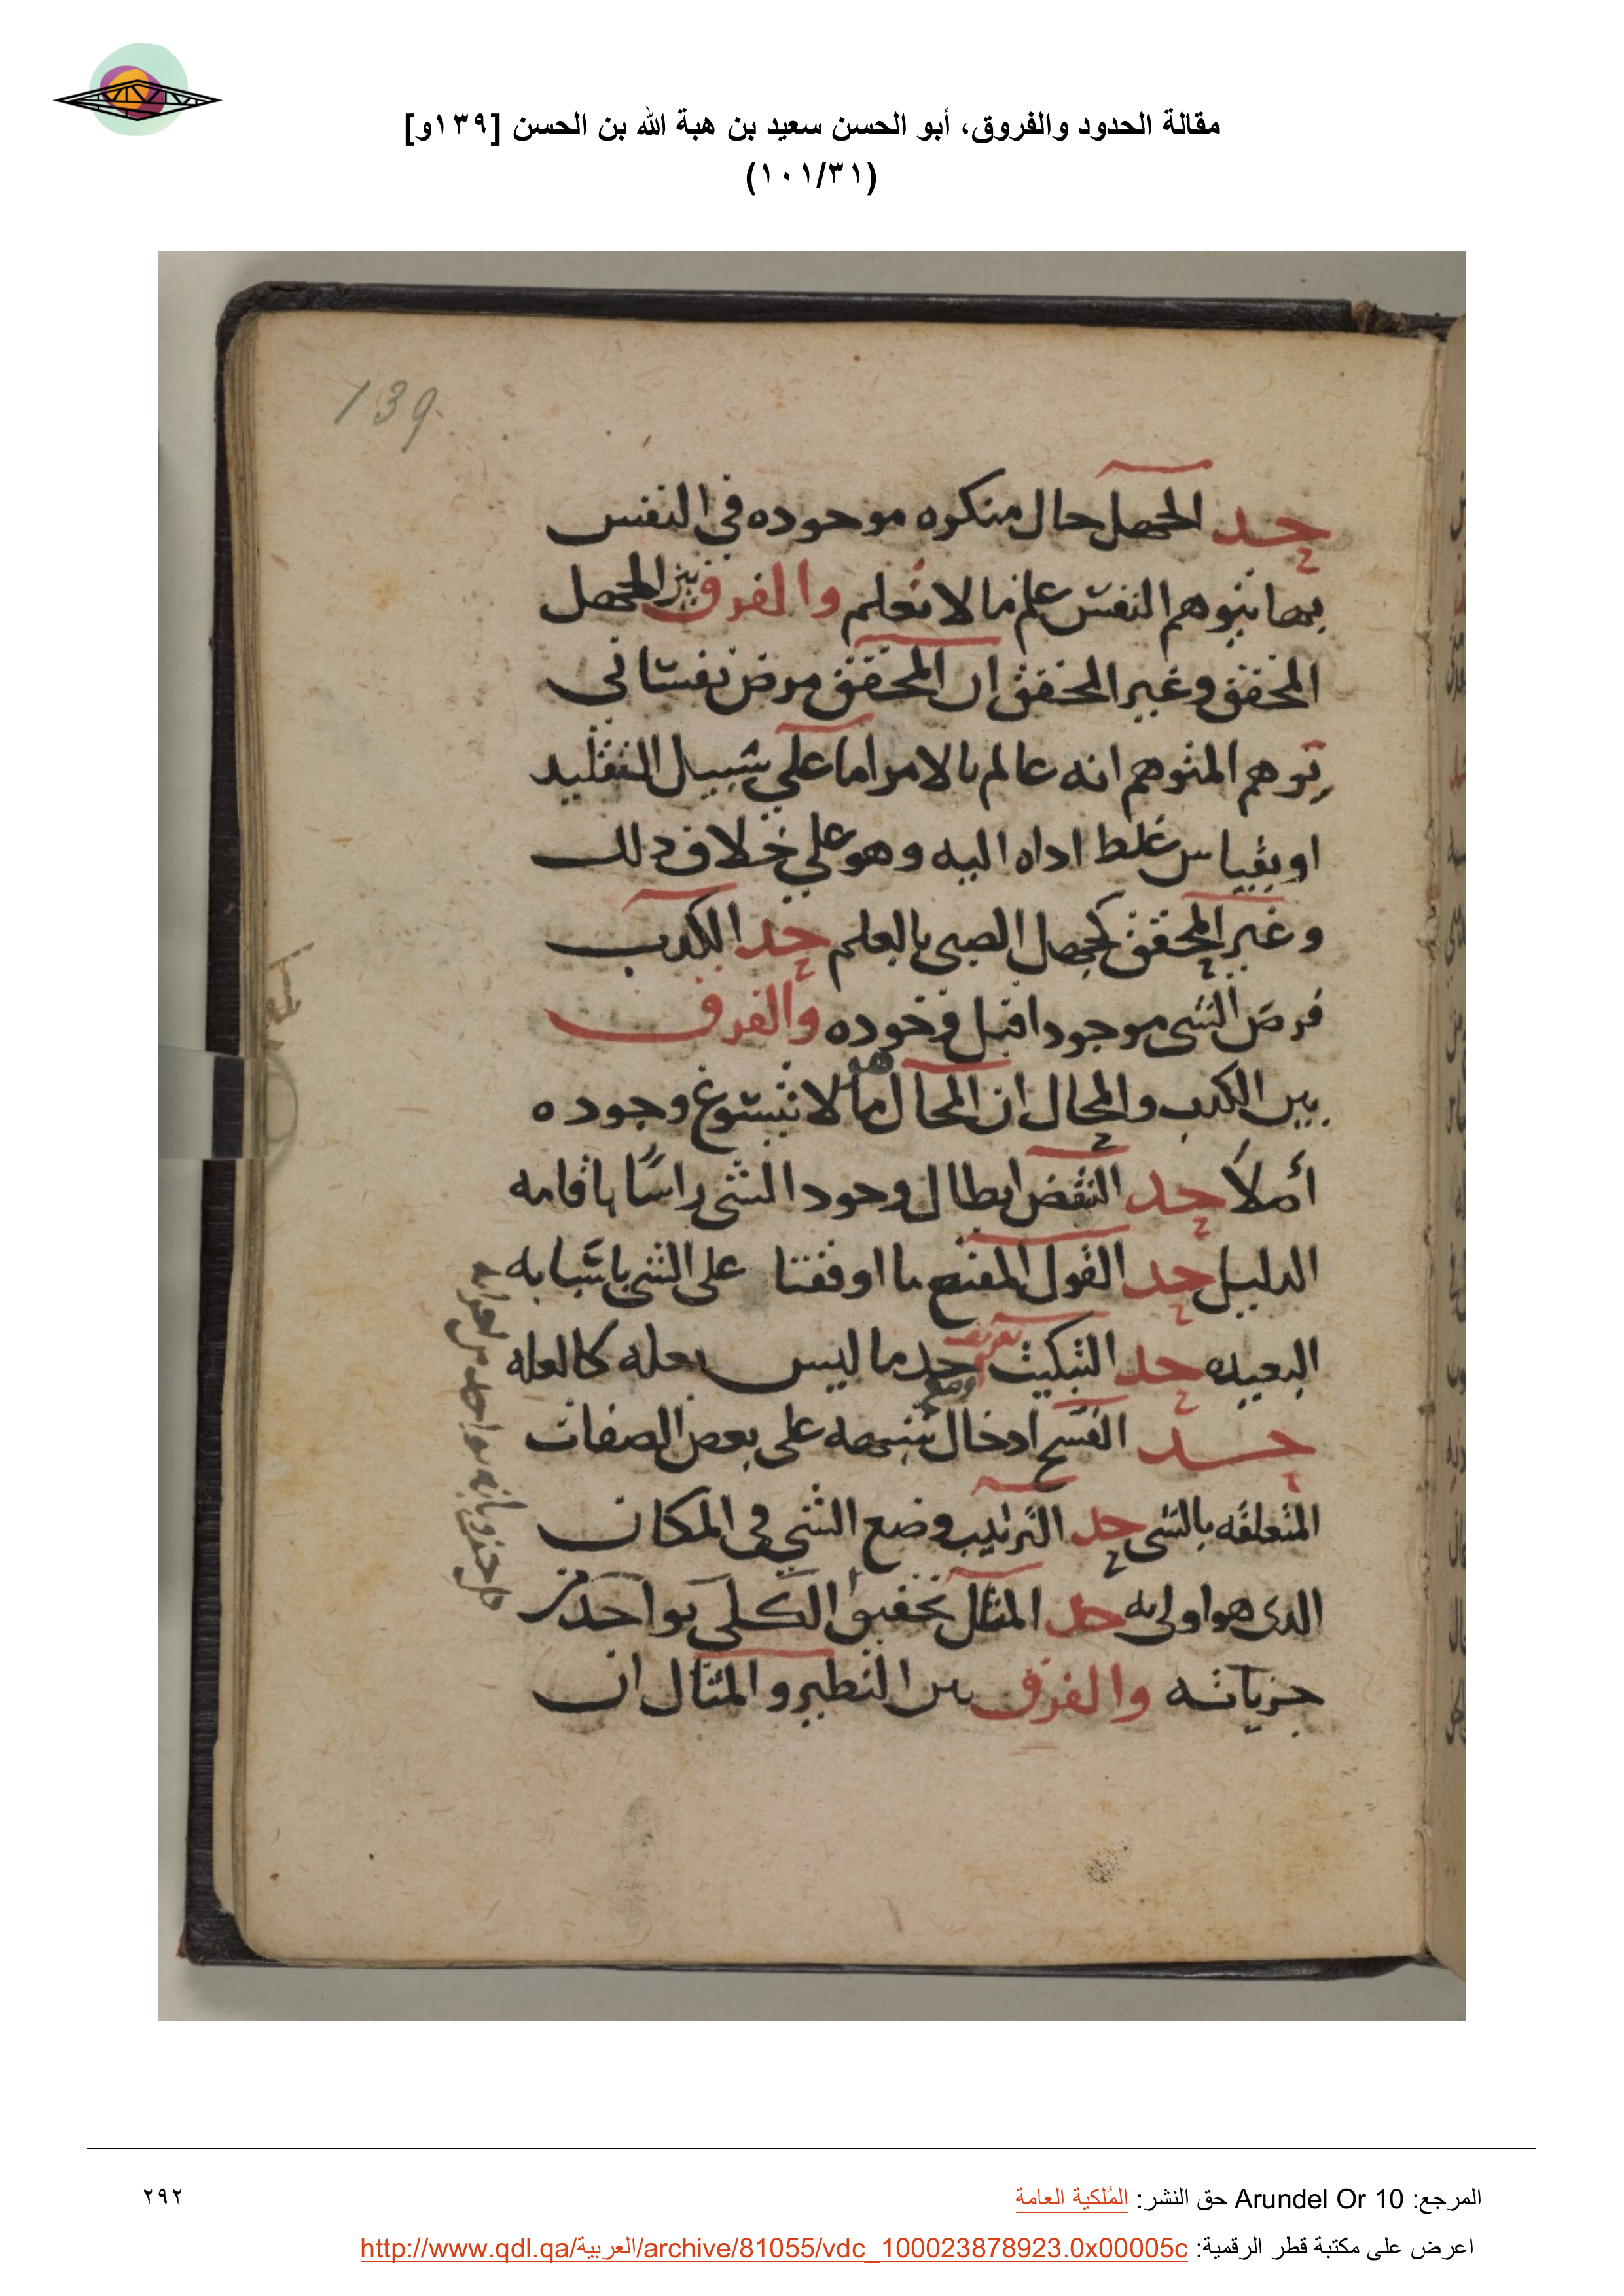 مقالة الحدود والفروق، أبو الحسن سعيد بن هبة الله بن الحسن [١٣٩و]
(١٠١/٣١)
139
حد الجهل حال منكره موجوده في النفس
بها تتوهم النفس علم ما لا تعلم والفرق بين الجهل
المحقق وغير المحقق ان المحقق مرض نفساني
يتوهم المتوهم انه عالم بالامر اما على سبيل التقليد
او بقياس غلط اداه اليه وهو على خلاف ذلك
وغير المحقق كجهل الصبي بالعلم حد الكذب
فرض الشي موجودا قبل وجوده والفرق
بين الكذب والمحال ان المحال هو ما لا يتسوغ وجوده
أملاً حد النقض ابطال وجود الشي راسًا باقامه
الدليل حد القول المقنع ما اوقفنا على الشي باسبابه
البعيده حد التبكيت تعريف حد ما ليس بعله كالعله
حد الفسخ ادخال شبهه على بعض الصفات
المتعلقه بالشي حد الترتيب وضع الشي في المكان
الذي هو اولى به حد المثال تحقيق الكلي بواحد من
جزياته والفرق بين النظير والمثال ان
المرجع: Arundel Or 10 حق النشر: المُلكية العامة
٢٩٢
اعرض على مكتبة قطر الرقمية: http://www.qdl.qa/العربية/archive/81055/vdc_100023878923.0x00005c